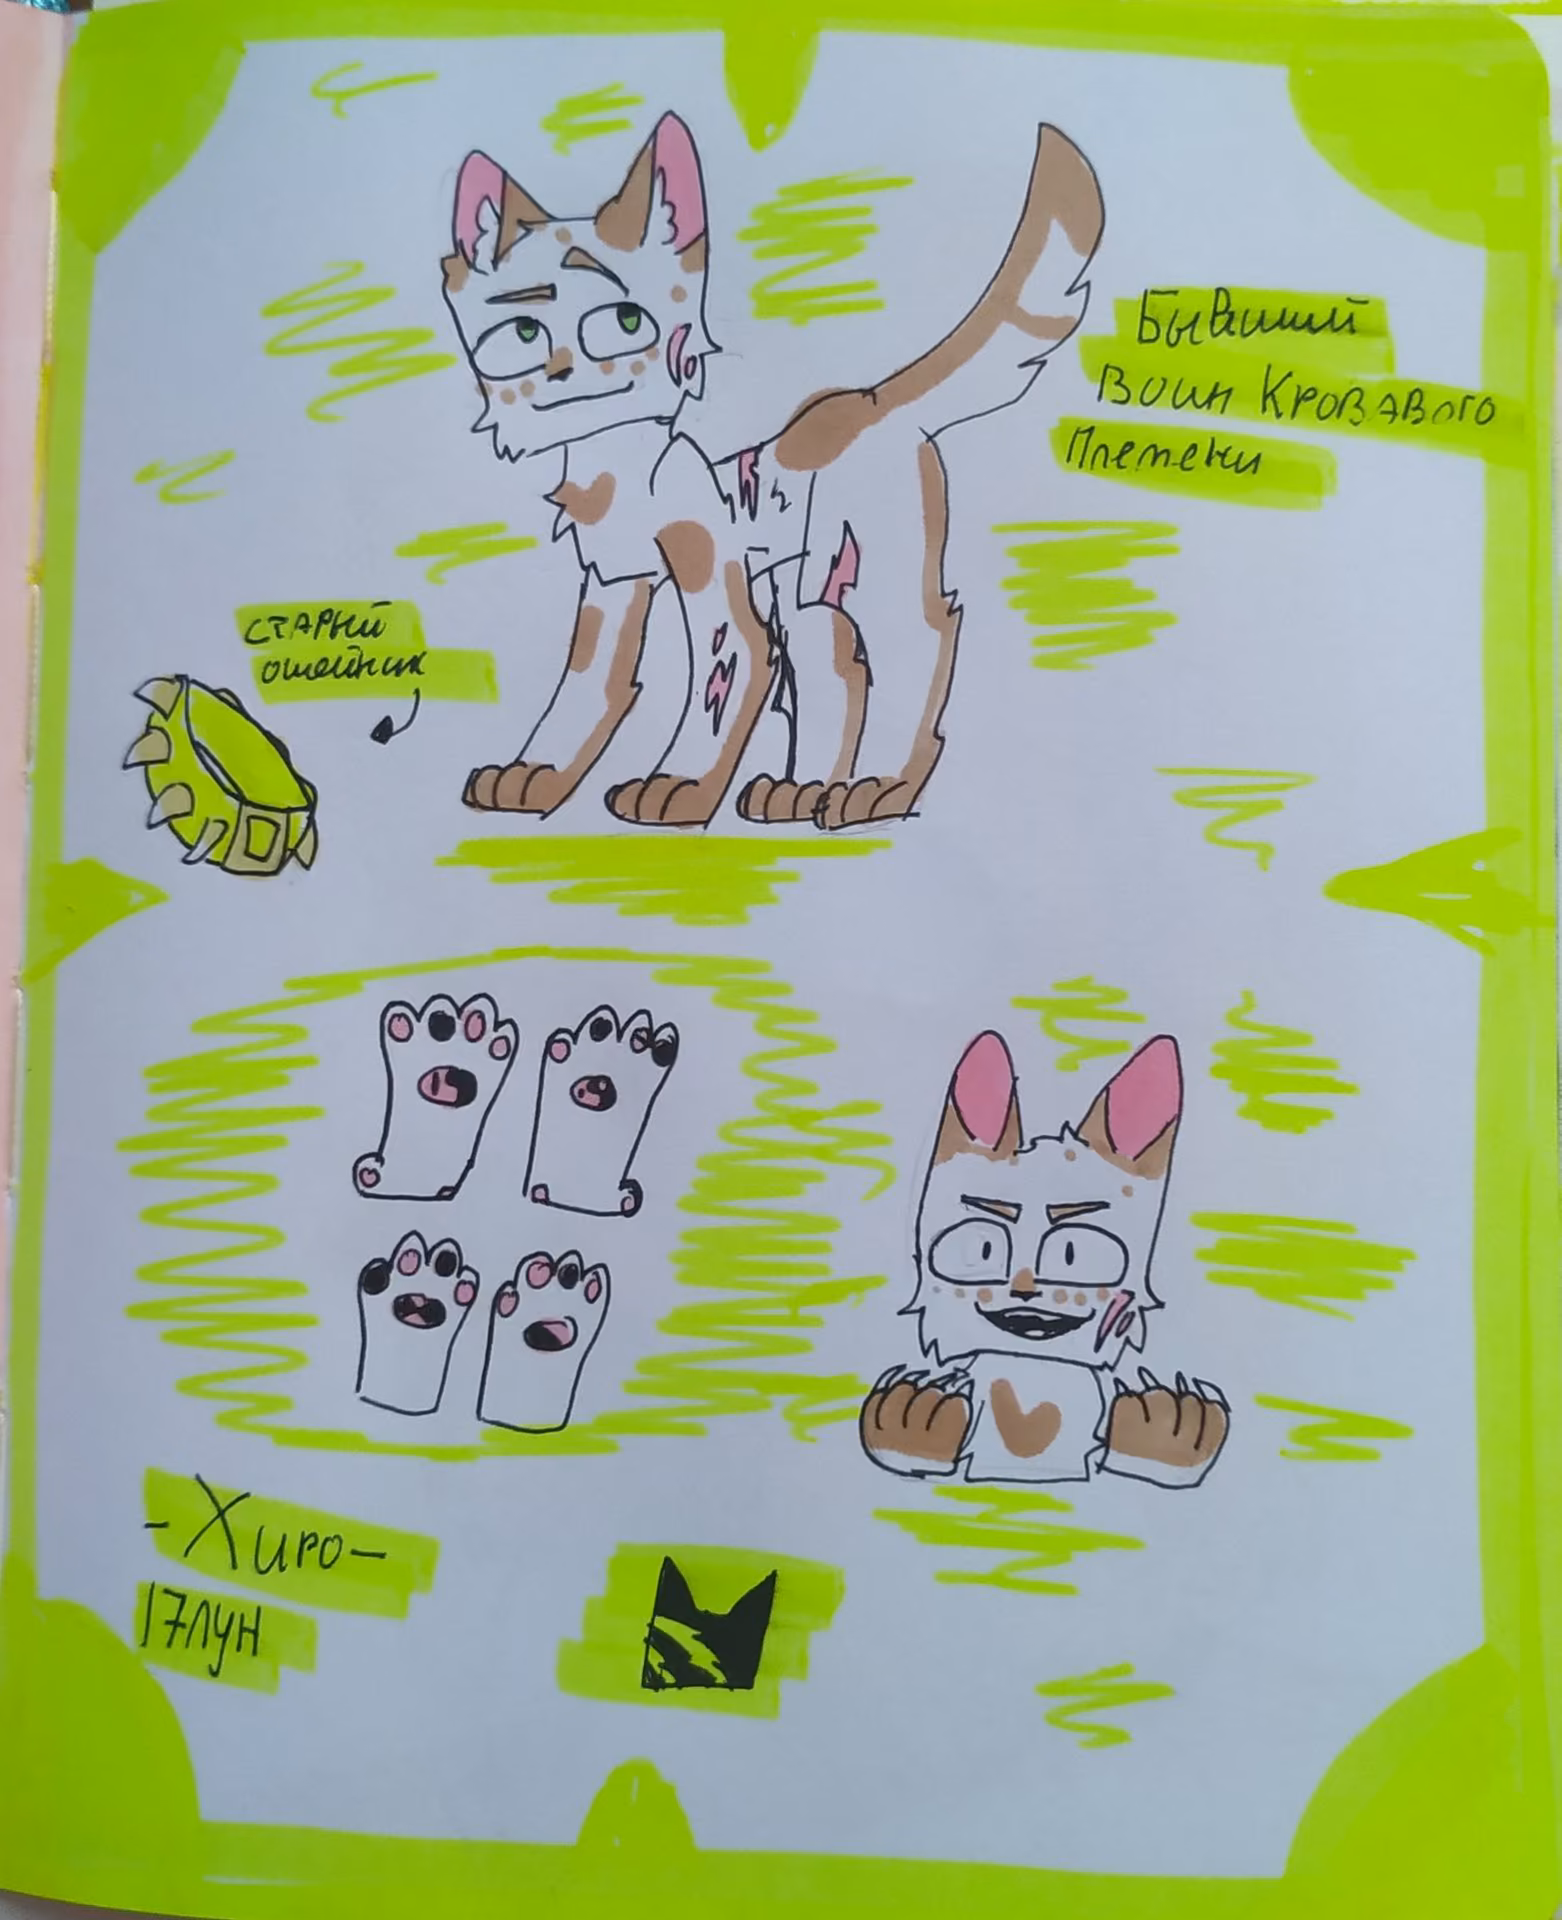 Бывший
Воин Кровавого
Племени
старый
ошейник
-Хиро-
17лун